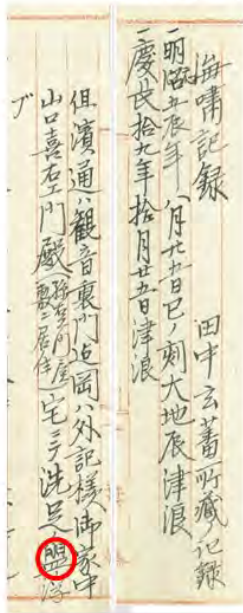 海嘯記録
田中玄蕃所藏ノ記録
一明應五辰年八月廿五日巳ノ刻大地辰津浪
一慶長拾九年拾月廿五日津浪
但濱通ハ観音裏門迄岡ハ外記様御家中
山口喜右エ門殿(孫左エ門屋敷ニ居住)宅ニテ洗足盥ヲ浮
ブ